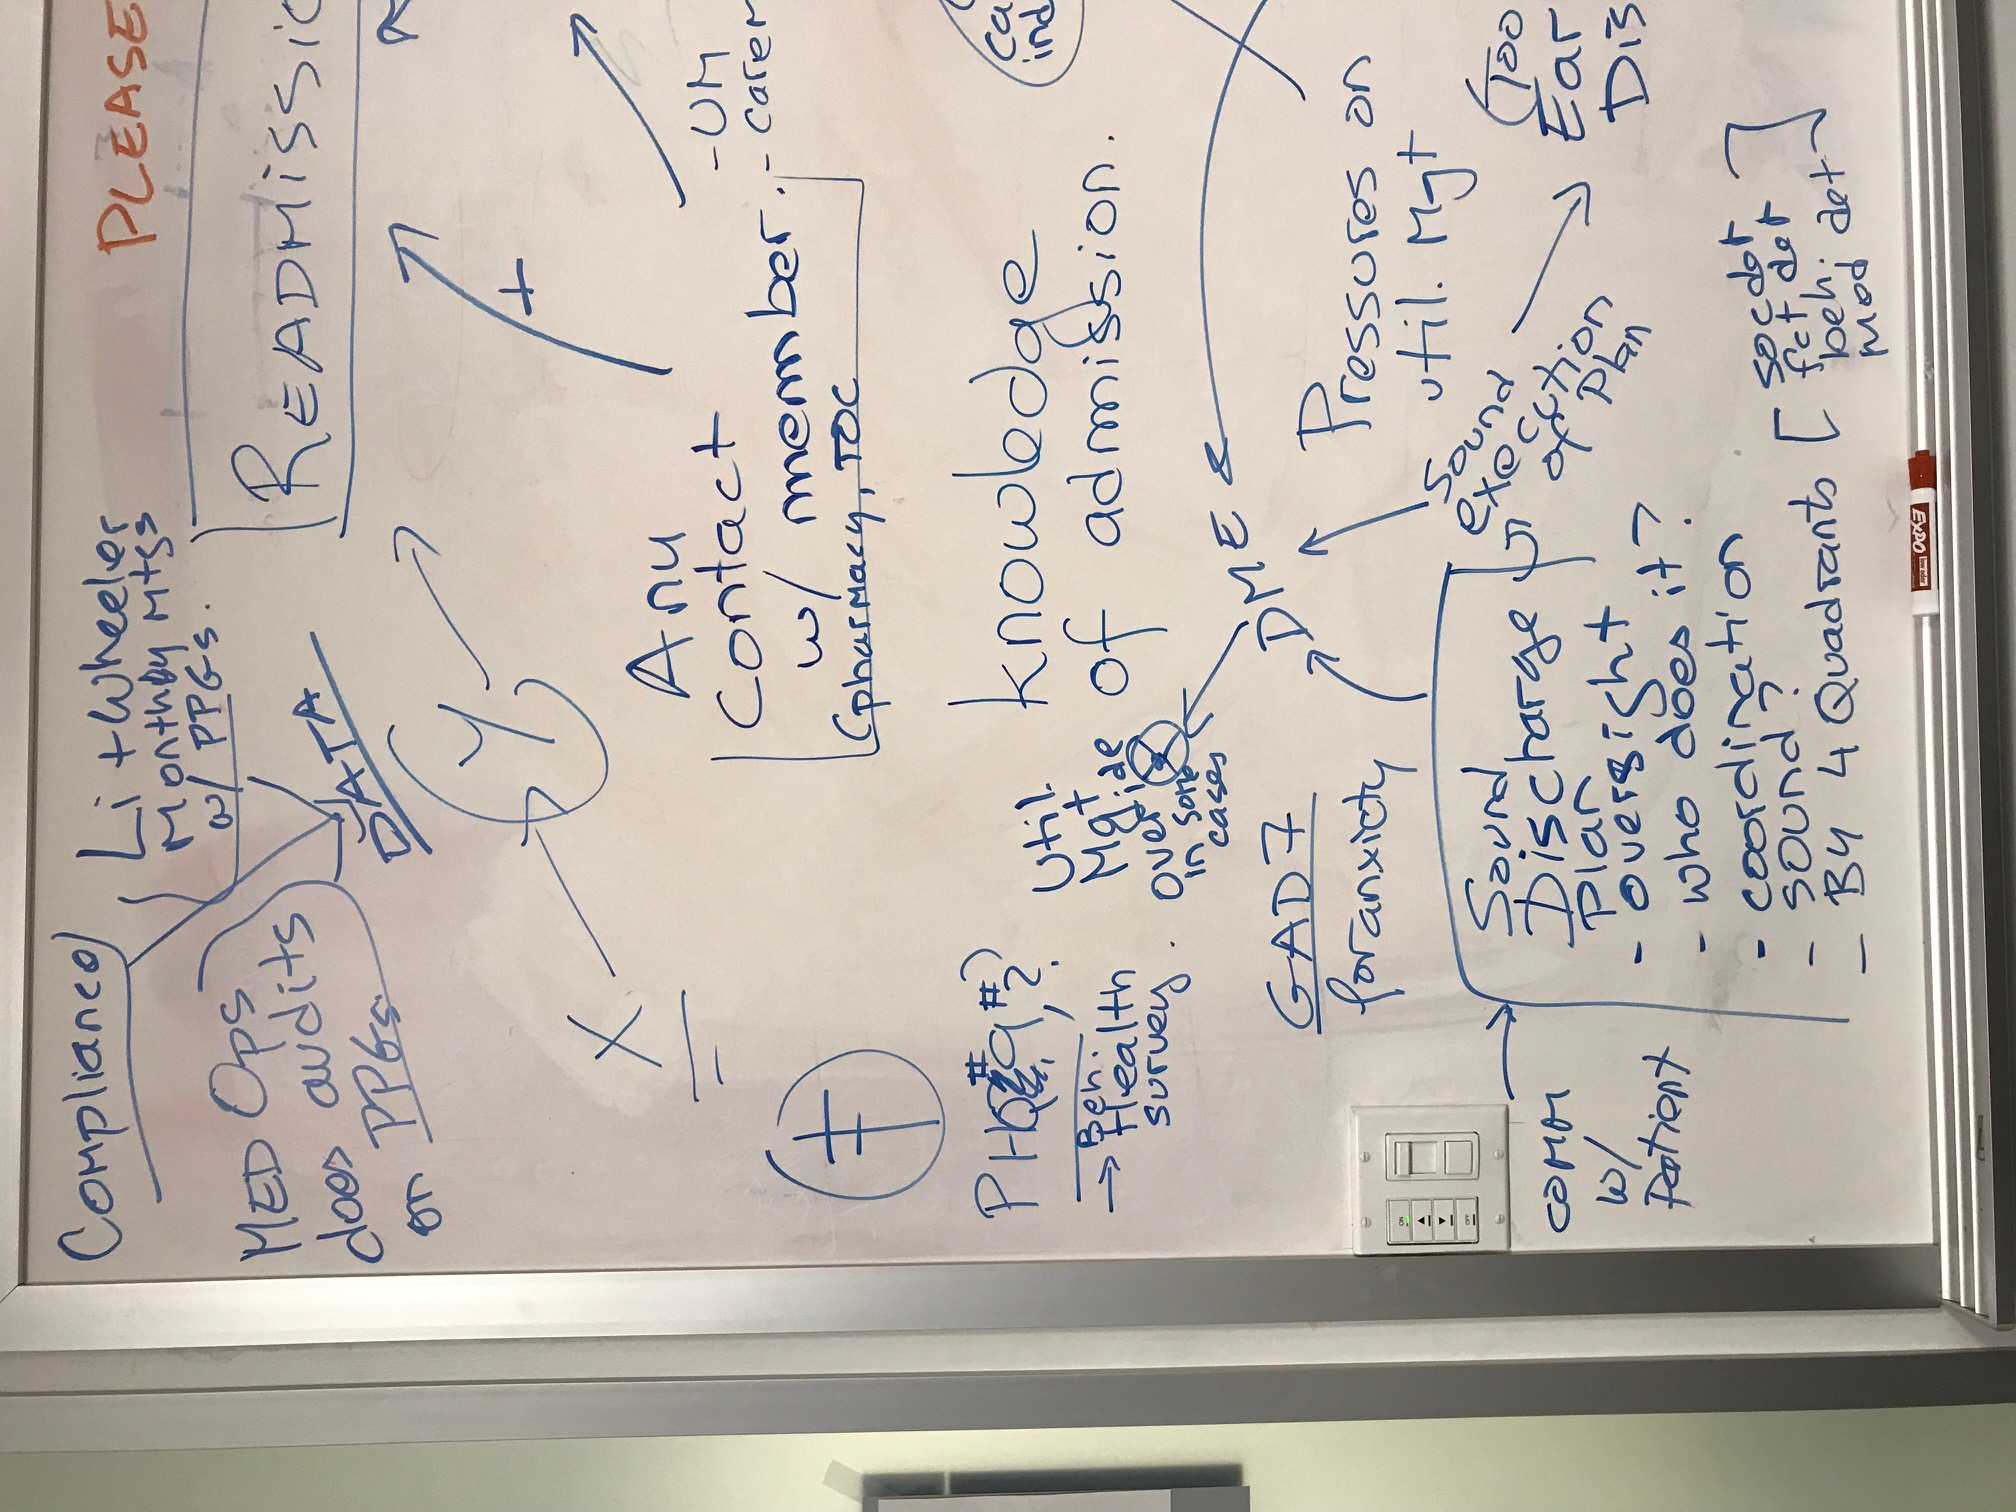 Compliance
Li + Wheeler
Monthly Mtgs
w/ PPGs.
PLEASE
MED Ops
does audits
on PPGs
DATA
READMISSIO
Y
X
+
Any
Contact
w/ member.
(pharmacy, TOC
- UM
- carem
PHQ 9, #?
→ Beh.
Health
survey.
Util.
Mgt
override
in some
cases
knowledge
of admission.
ca
ind
DME
GAD 7
for anxiety
Pressures on
util. Mgt
comm
w/
Patient
Sound
Discharge
plan
- oversight
- who does it?
- coordination
- sound?
- By 4 Quadrants
[socdet
fct det
beh.
med det]
Sound
execution
of
plan
(Too
Ear
Dis
ON
OFF
EXPO
low odor